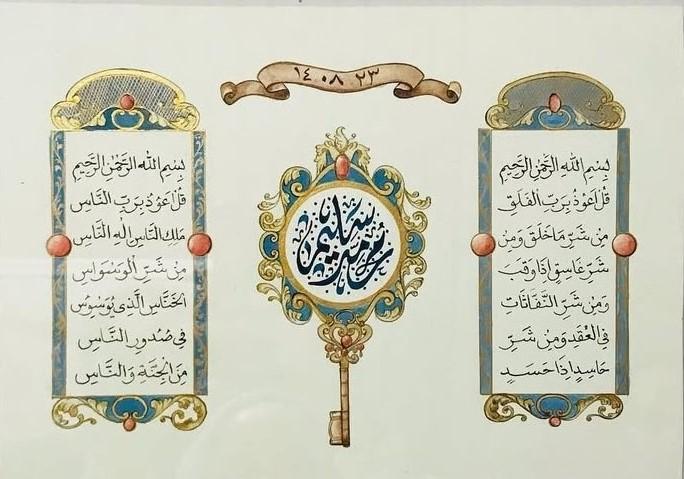 ١٤ ٠٨ ٢٣
بِسْمِ اللهِ الرَّحْمٰنِ الرَّحِيْمِ
قُلْ اَعُوْذُ بِرَبِّ الْفَلَقِ
مِنْ شَرِّ مَا خَلَقَ وَمِنْ
شَرِّ غَاسِقٍ اِذَا وَقَبَ
وَمِنْ شَرِّ النَّفَّاثَاتِ
فِى الْعُقَدِ وَمِنْ شَرِّ
حَاسِدٍ اِذَا حَسَدَ
بِسْمِ اللهِ الرَّحْمٰنِ الرَّحِيْمِ
قُلْ اَعُوْذُ بِرَبِّ النَّاسِ
مَلِكِ النَّاسِ اِلٰهِ النَّاسِ
مِنْ شَرِّ الْوَسْوَاسِ
الْخَنَّاسِ الَّذِى يُوَسْوِسُ
فِى صُدُوْرِ النَّاسِ
مِنَ الْجِنَّةِ وَالنَّاسِ